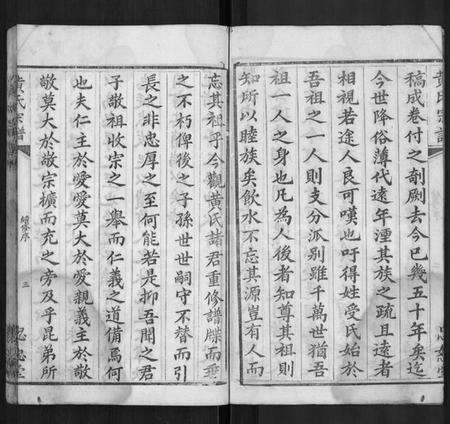 稿成卷付之剞劂去今已幾五十年矣迄
今世降俗薄代遠年湮其族之疏且遠者
相視若途人良可嘆也吁得姓受氏始於
吾祖之一人則支分派別雖千萬世猶吾
祖一人之身也凡為人後者知尊其祖則
知所以睦族矣飲水不忘其源豈有人而
忘其祖乎今觀黃氏諸君重修譜牒而垂
之不朽俾後之子孫世世嗣守不替而引
長之非忠厚之至何能若是抑吾聞之君
子敬祖收宗之一舉而仁義之道備焉何
也夫仁主於愛愛莫大於愛親義主於敬
敬莫大於敬宗擴而充之旁及乎昆弟所
黃氏宗譜
續修序
三